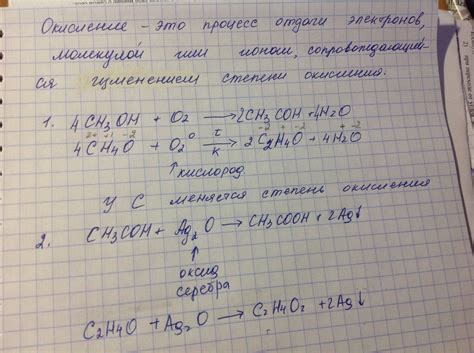 Окисление - это процесс отдачи электронов,
молекулой или ионом, сопровождающий-
ся изменением степени окисления.
1. 4CH3OH + O2 → 2CH3COH + 4H2O
2+ +1 -2 -2 + -2 + -2
4CH4O + O2⁰ → 2C2H4O + 4H2O
t
K
↑
кислород
у С меняется степень окисления
2. CH3COH + Ag2O → CH3COOH + 2Ag↓
↑
оксид
серебра
C2H4O + Ag2O → C2H4O2 + 2Ag↓